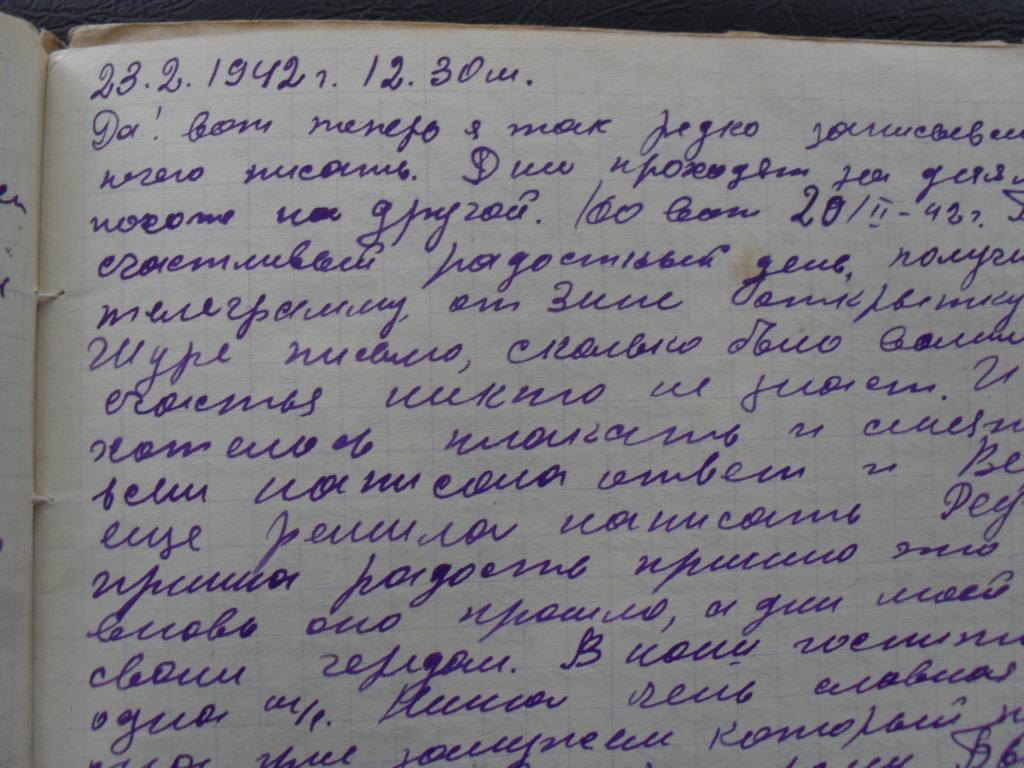 23.2.1942 г. 12.30 м.
Да! вот теперь я так редко записываю
нечего писать. Дни проходят за днями
похож на другой. Но вот 20/II-42 г.
счастливый радостный день, получи
телеграмму от Зины открытку
Шуре письмо, сколько было
счастья никто не знает. И
хотелось плакать и смеят
всем написала ответ и Ве
еще решила написать
пришла радость пришло это
вновь оно прошло, а дни
своим чередом. В наш госпит
одна м/с. Нина очень славная
она уже замужем который